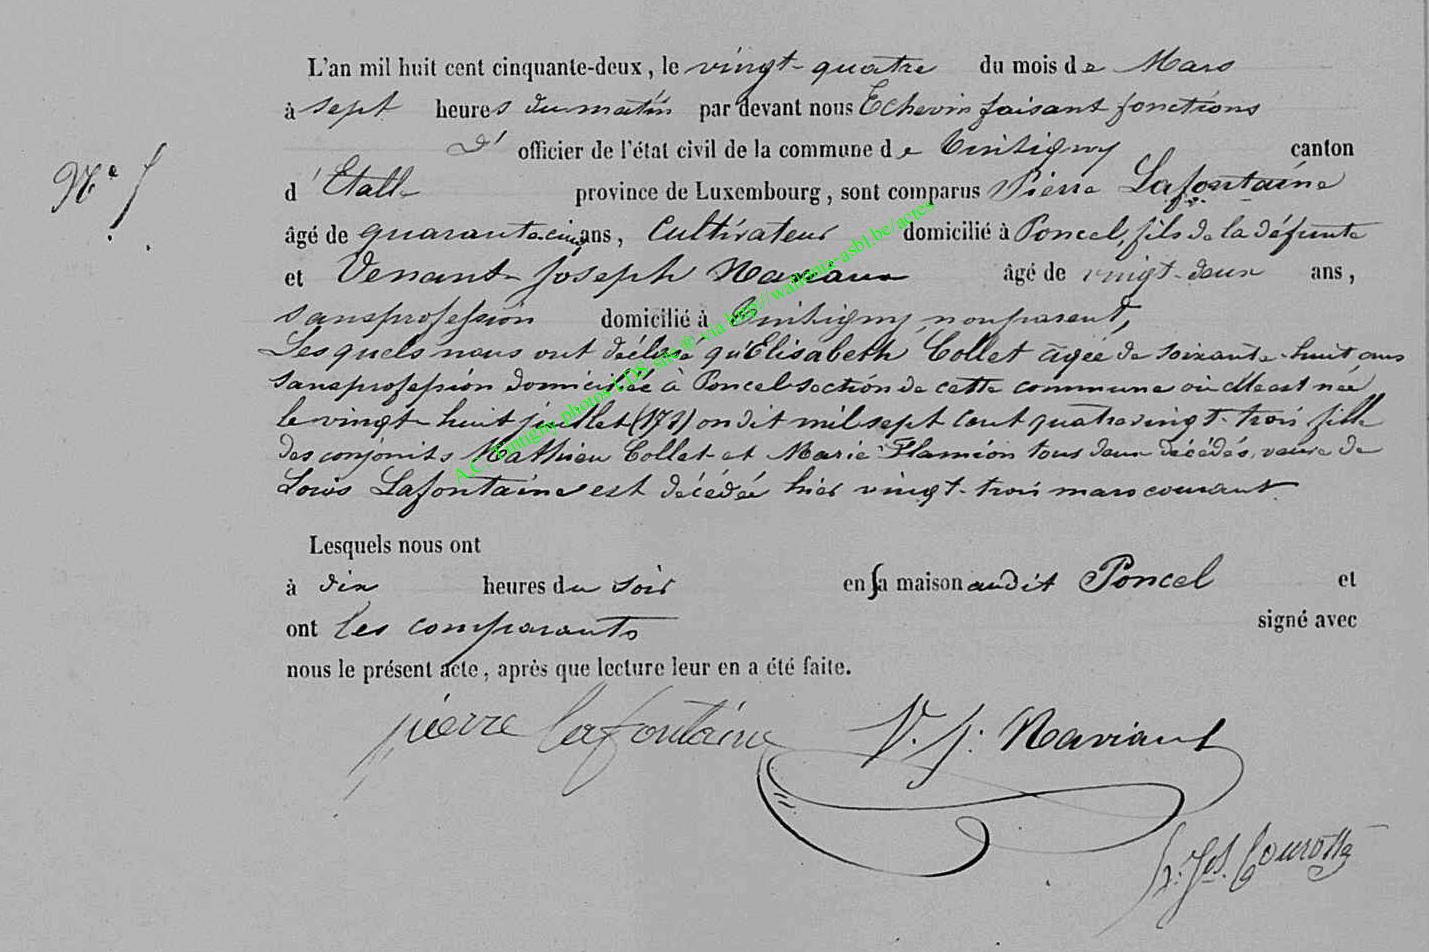 L'an mil huit cent cinquante-deux, le vingt-quatre du mois de Mars
à sept heures du matin par devant nous Echevin faisant fonctions
d' officier de l'état civil de la commune de Tintigny canton
d'Etalle province de Luxembourg, sont comparus Pierre Lafontaine
âgé de quarante cinq ans, Cultivateur domicilié à Poncel, fils de la défunte
et Venant Joseph Naviaux âgé de vingt-deux ans,
sans profession domicilié à Tintigny, non parent,
Lesquels nous ont déclaré qu'Elisabeth Collet âgée de soixante-huit ans
sans profession domiciliée à Poncel section de cette commune où elle est née
le vingt huit juillet on dit mil sept cent quatre vingt-trois fille
des conjoints Mathieu Collet et Marie Flamion tous deux décédés, veuve de
Louis Lafontaine est décédée hier vingt-trois mars courant
N°
Lesquels nous ont
à dix heures du soir en sa maison audit Poncel et
ont les comparants signé avec
nous le présent acte, après que lecture leur en a été faite.
pierre lafontaine V. J. Naviaux
A.C. Tintigny photos LDS site @ via http://wallonia-asbl.be/actes